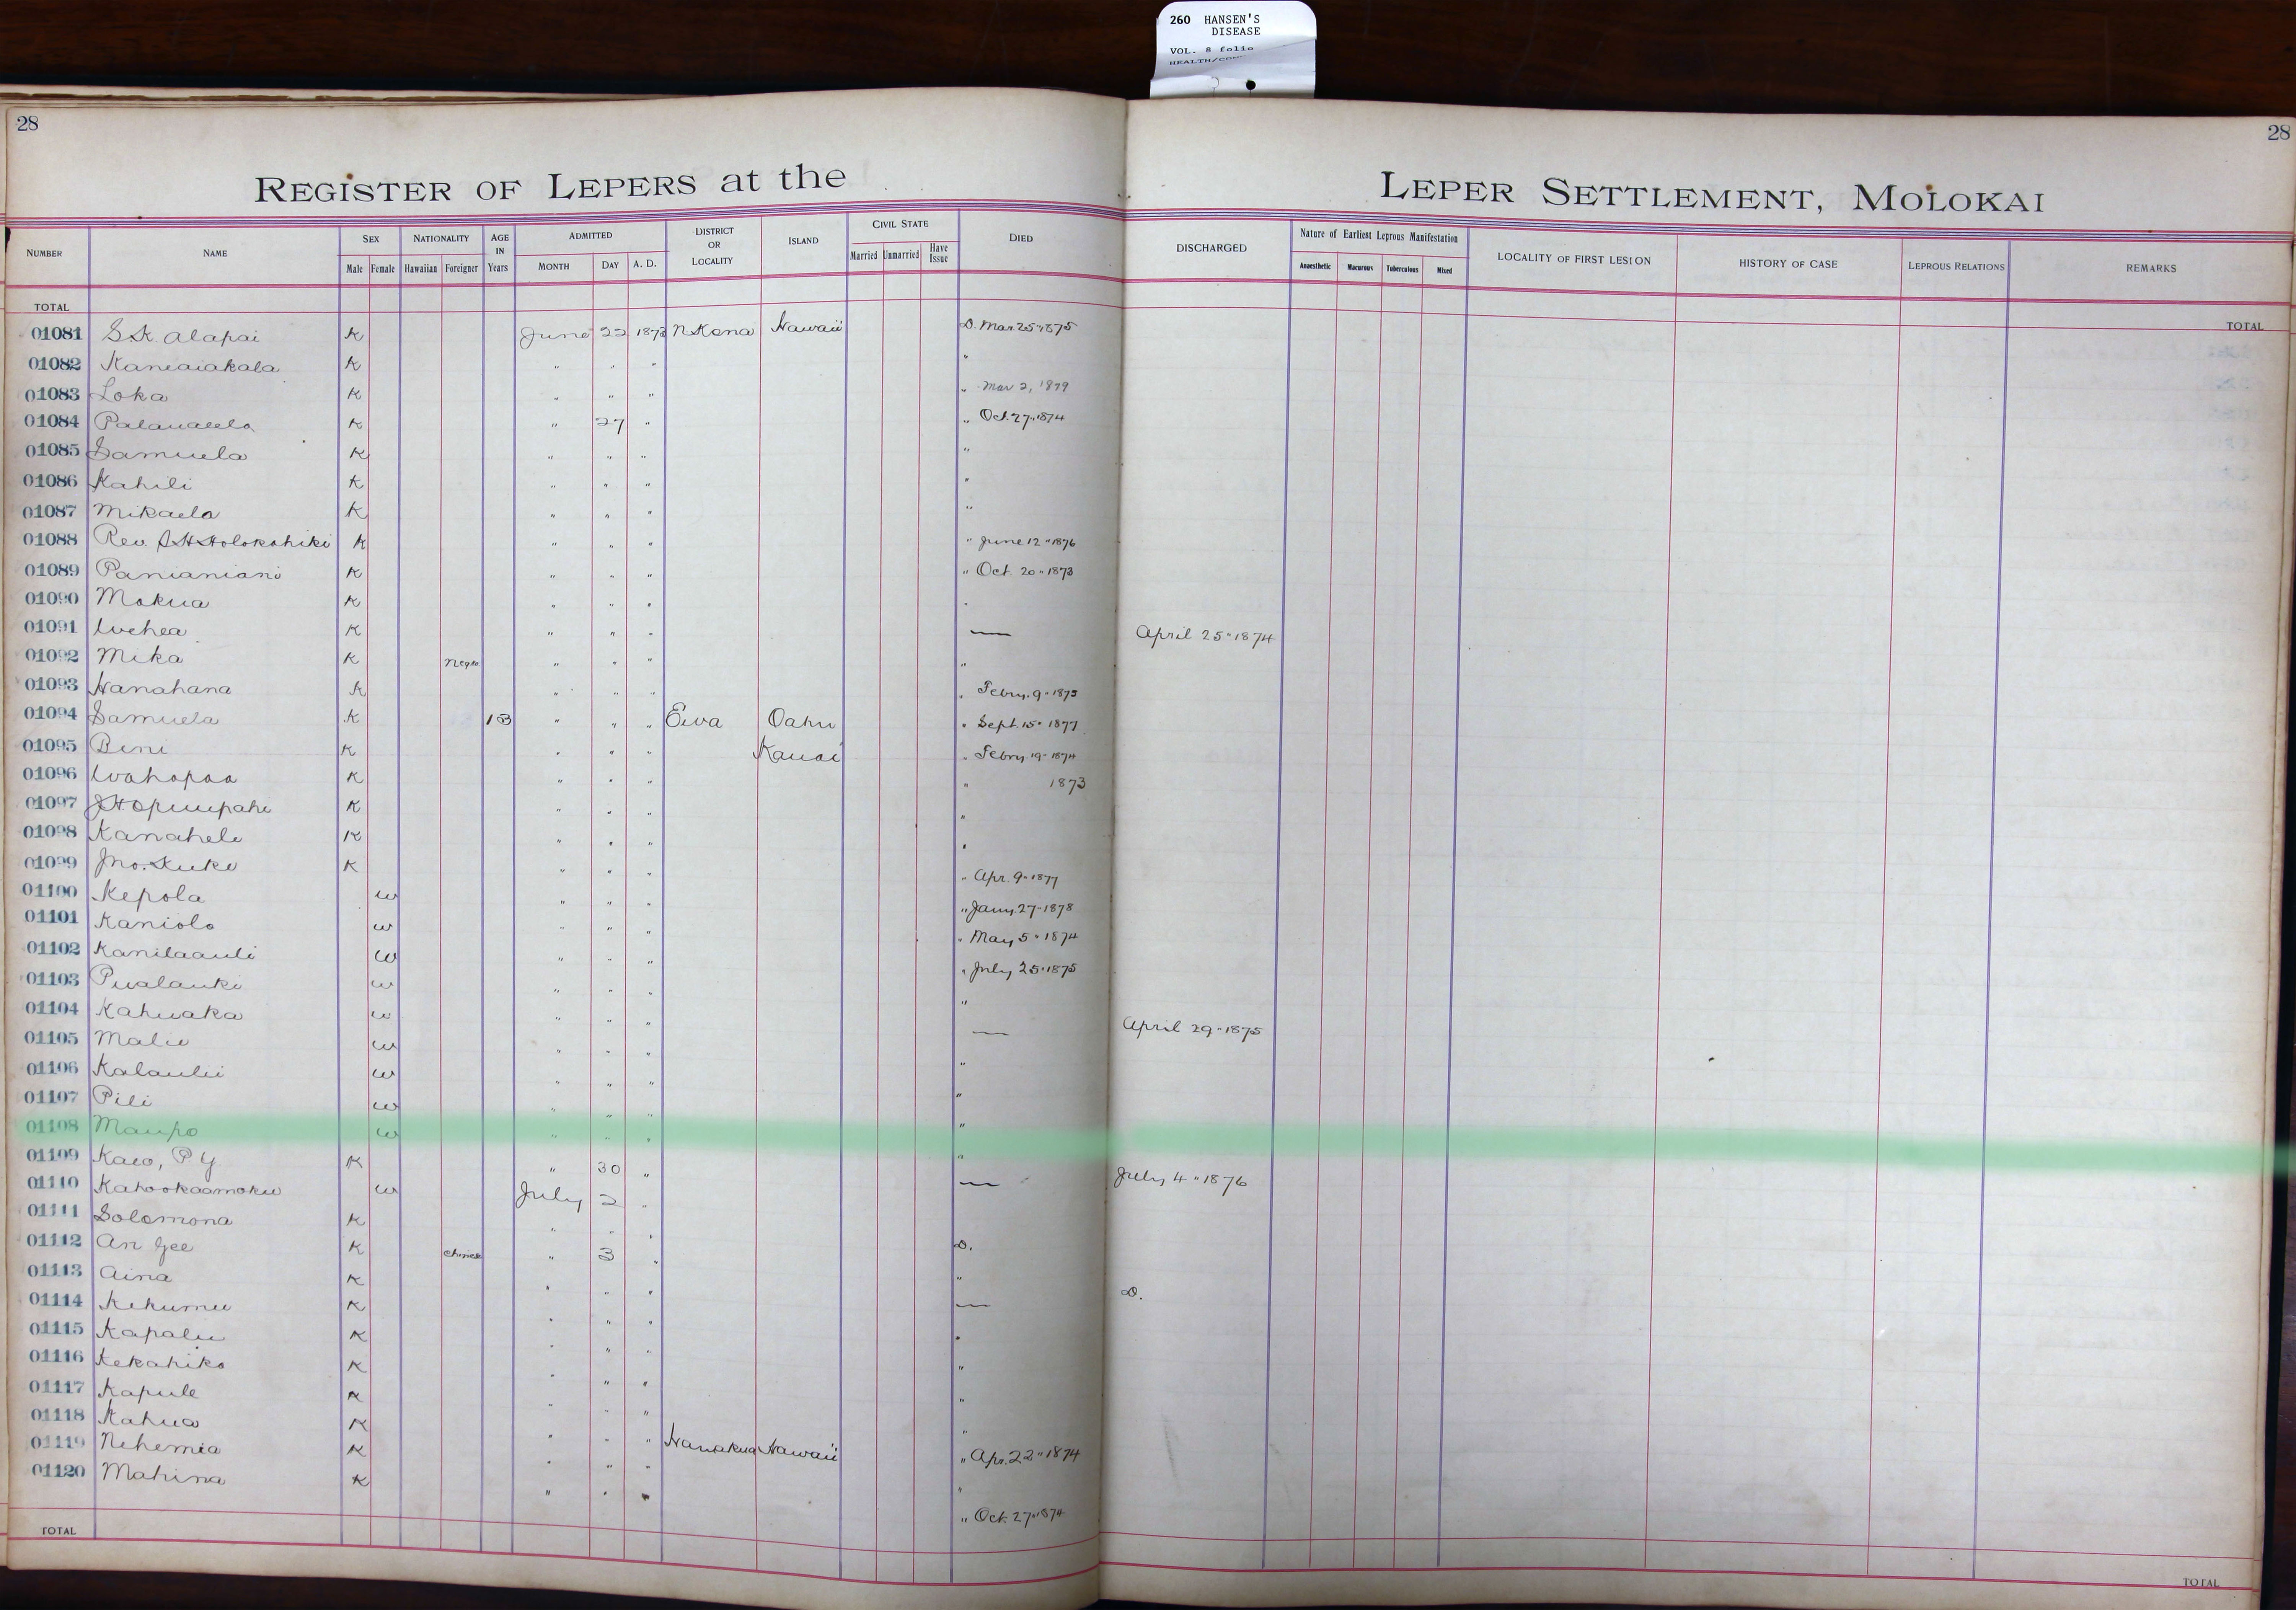 260 HANSEN'S
DISEASE
VOL. 8 folio
28
28
REGISTER OF LEPERS at the LEPER SETTLEMENT, MOLOKAI
NUMBER NAME SEX Male Female NATIONALITY Hawaiian Foreigner AGE IN Years ADMITTED MONTH DAY A. D. DISTRICT OR LOCALITY ISLAND CIVIL STATE Married Unmarried Have Issue DIED DISCHARGED Nature of Earliest Leprous Manifestation Anaesthetic Macurous Tuberculous Mixed LOCALITY OF FIRST LESION HISTORY OF CASE LEPROUS RELATIONS REMARKS
TOTAL TOTAL
01081 S.K. Alapai K June 22 1873 N Kona Hawaii D. Mar. 25 " 1875
01082 Kaneaiakala K " " " "
01083 Loka K " " " " Mar 2, 1879
01084 K " 27 " " Oct. 27 " 1874
01085 Samuela K " " " "
01086 Kahili K " " " "
01087 Mikaela K " " " "
01088 Rev. Holokahiki K " " " " June 12 " 1876
01089 Panianiani K " " " " Oct. 20 " 1873
01090 Mokua K " " " "
01091 Wehea K " " " — April 25 " 1874
01092 Mika K Negro " " " "
01093 Hanahana K " " " " Febry. 9 "
01094 Samuela K 13 " " " Ewa Oahu " Sept. 15 " 1877
01095 Beni K " " " Kauai " Febry 19 " 1874
01096 Wahapaa K " " " " 1873
01097 J.H. Opuupahi K " " " "
01098 Kanahele K " " " "
01099 Jno. Kuke K " " " " Apr. 9 " 1877
01100 Kepola W " " " " Jany. 27 " 1878
01101 Kaniolo W " " " " May 5 " 1874
01102 Kanilaauli W " " " " July 25 " 1875
01103 Pualauki W " " " "
01104 Kahuaka W " " " — April 29 " 1875
01105 Malie W " " " "
01106 Kalaulii W " " " "
01107 Pili W " " " "
01108 Maupo W " " " "
01109 Kaeo, P Y K " 30 " — July 4 " 1876
01110 Kahookaamoku W July 2 "
01111 Solomona K " " " D.
01112 An Gee K Chinese " 3 " "
01113 Aina K " " " — D.
01114 Kekumu K " " " "
01115 Kapalu K " " " "
01116 Kekahiko K " " " "
01117 Kapule K " " " "
01118 Kahua K " " "
01119 Nehemia K " " " Hamakua Hawaii " Apr. 22 " 1874
01120 Mahina K " " " " Oct. 27 " 1874
TOTAL TOTAL